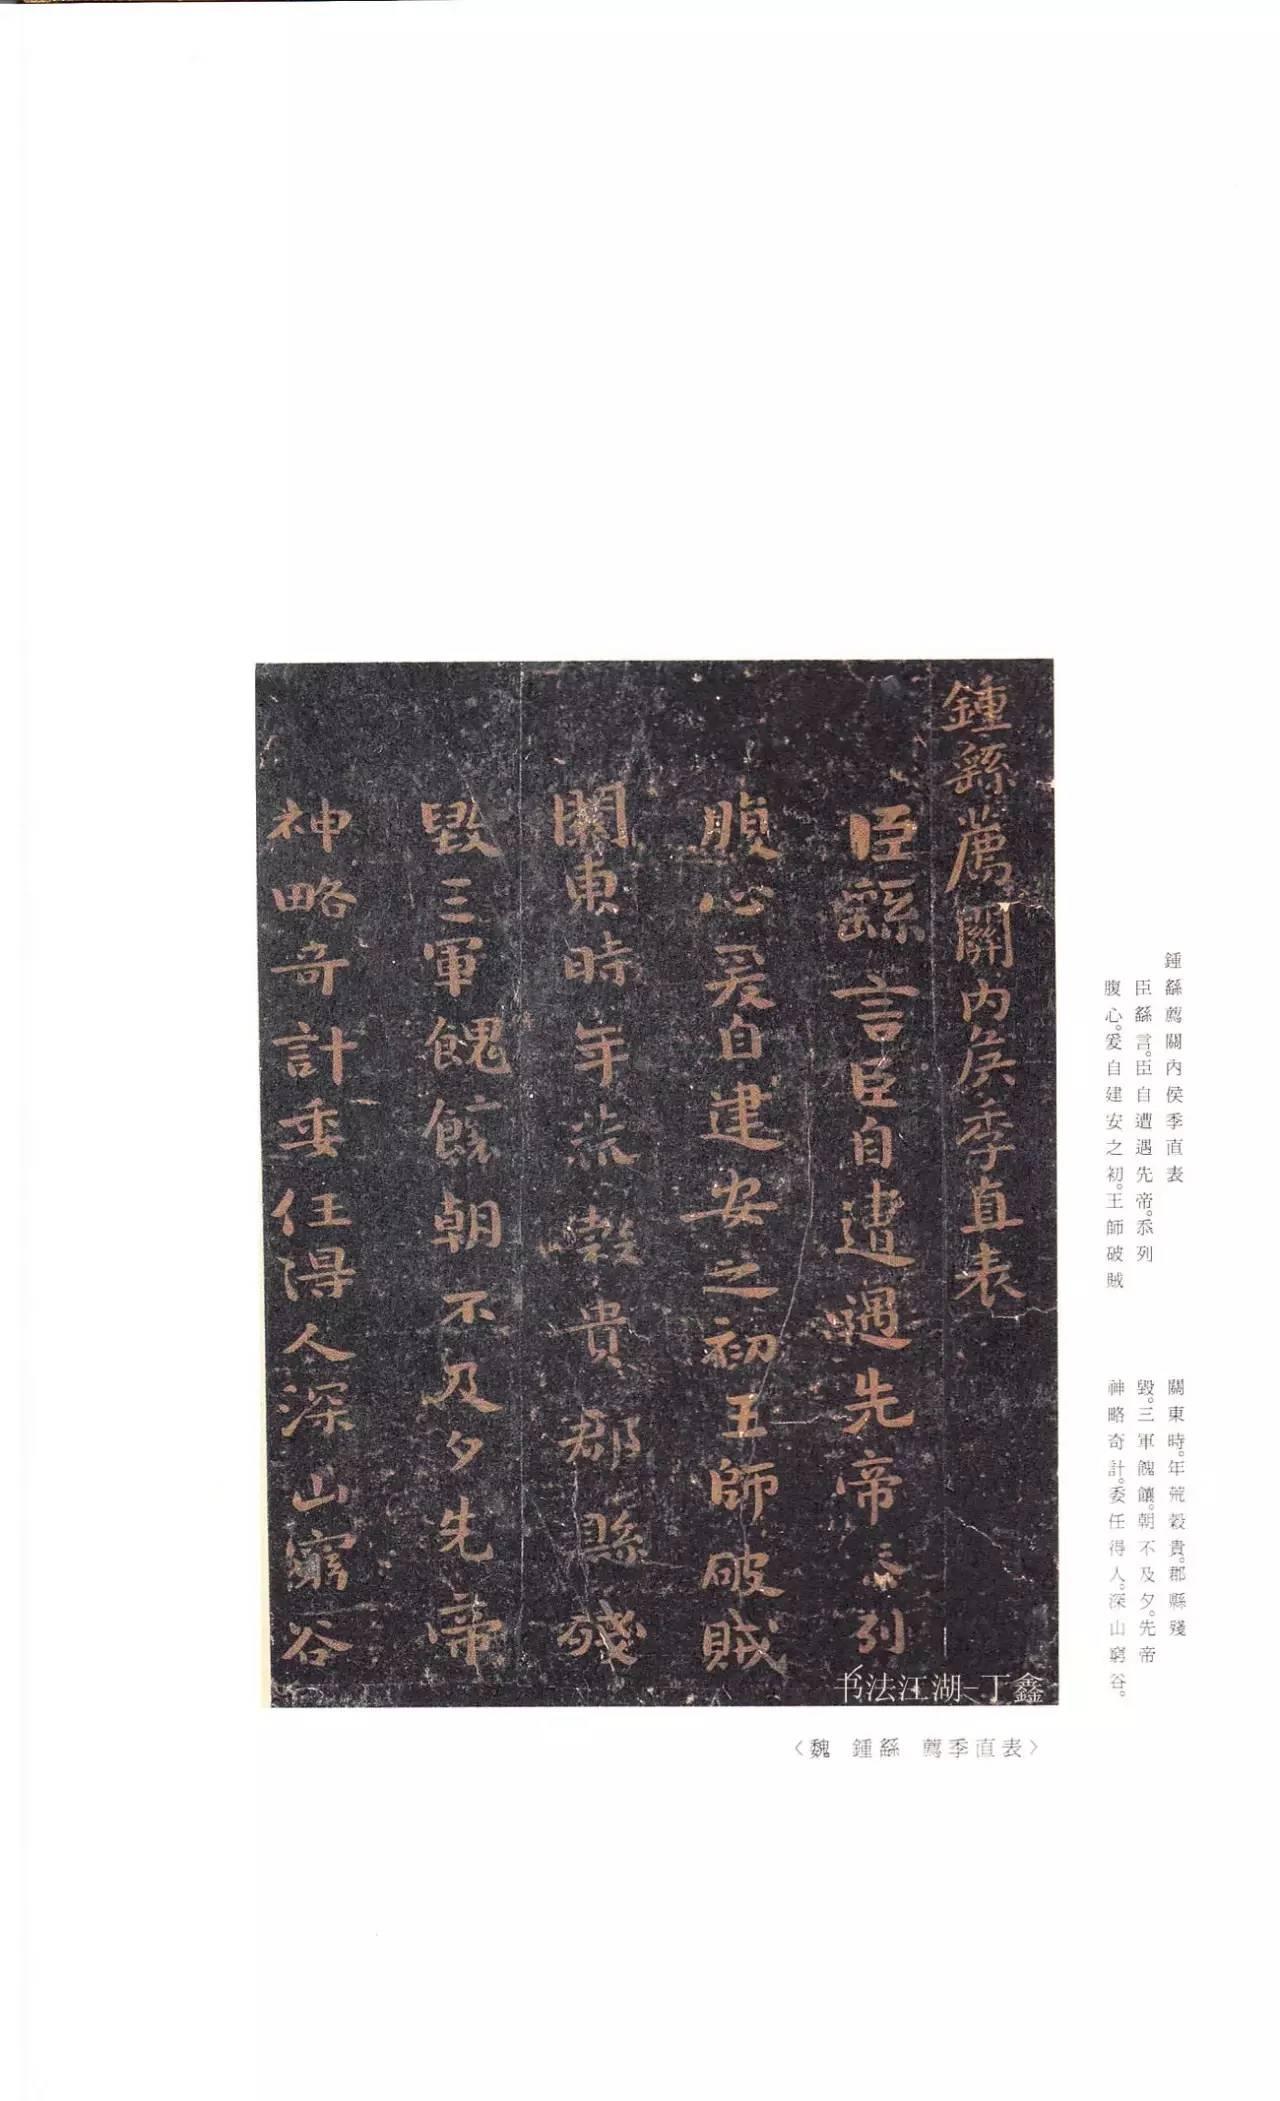 鍾繇薦關内侯季直表
臣繇言臣自遭遇先帝忝列
腹心爰自建安之初王師破賊
關東時年荒穀貴郡縣殘
毀三軍餽饟朝不及夕先帝
神略奇計委任得人深山窮谷
书法江湖-丁鑫
鍾繇薦關內侯季直表
臣繇言。臣自遭遇先帝。忝列
腹心。爰自建安之初。王師破賊
關東時。年荒穀貴。郡縣殘
毀。三軍餽饟。朝不及夕。先帝
神略奇計。委任得人。深山窮谷。
〈魏 鍾繇 薦季直表〉